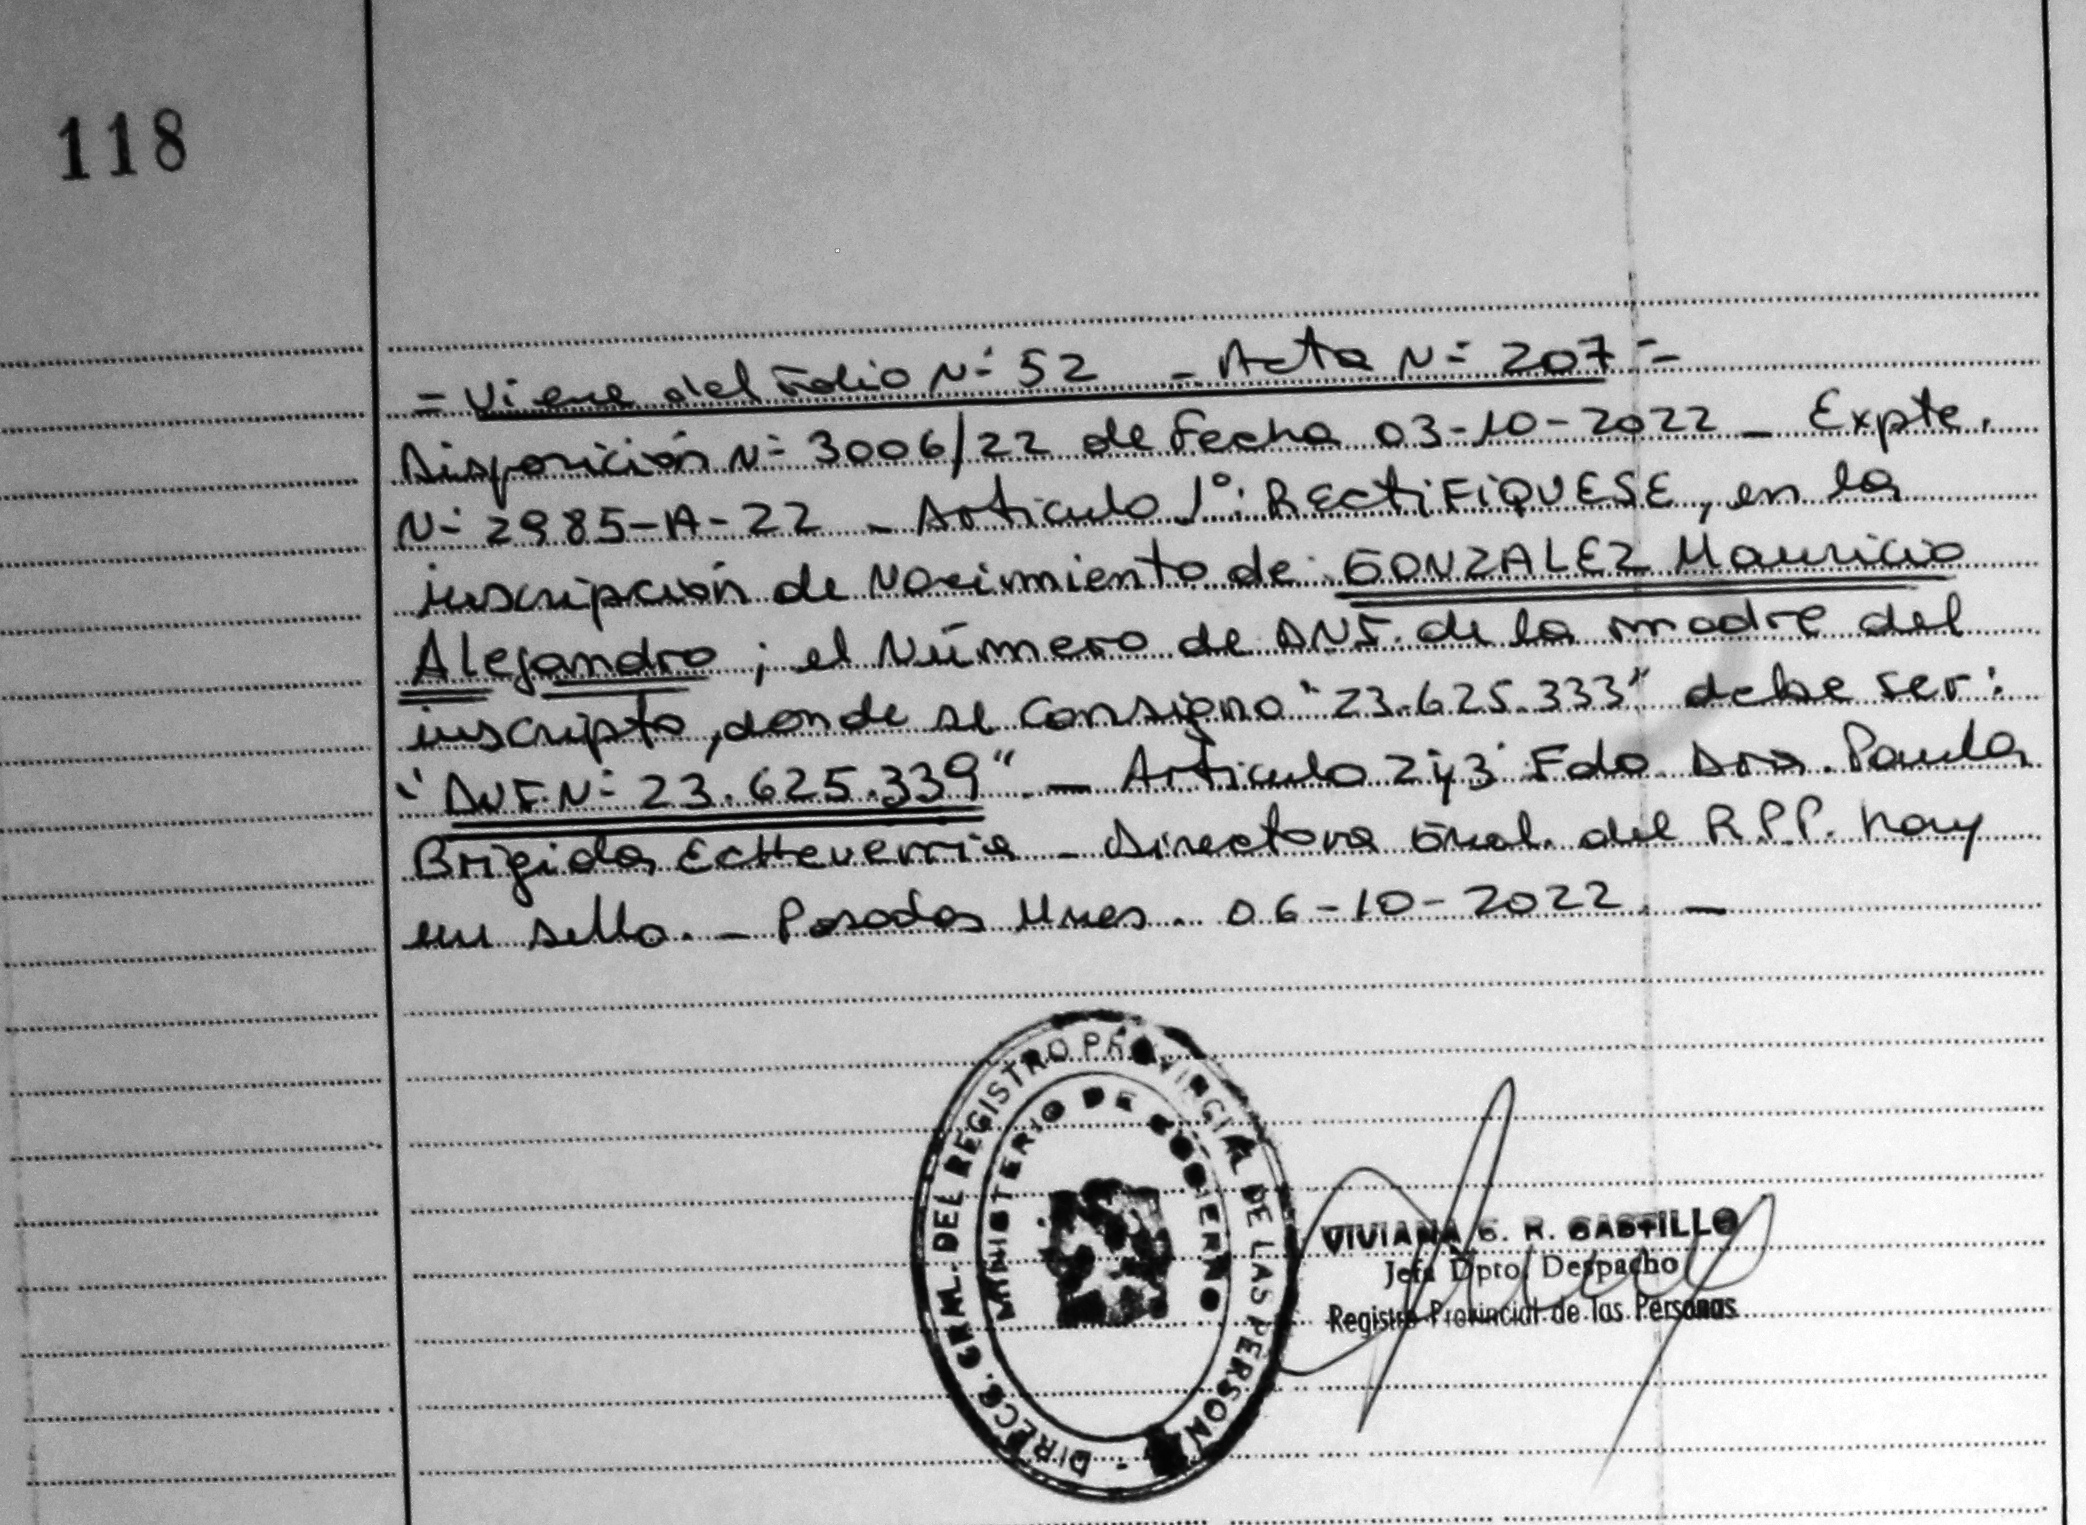 118
- Viene del Folio N° 52 - Acta N° 207 -
Disposición N° 3006/22 de Fecha 03-10-2022 - Expte.
N° 2985-A-22 - Articulo 1°: RECTIFIQUESE, en la
inscripción de Nacimiento de: GONZALEZ Mauricio
Alejandro; el Número de DNI. de la madre del
inscripto, donde se consigno "23.625.333" debe ser:
"DNI.N° 23.625.339" - Articulo 2 y 3 Fdo Dra. Paula
Brigida Echeverria - Directora Gral. del R.P.P. hay
un sello. - Posadas Mnes. 06-10-2022. -
DIRECC. GRAL. DEL REGISTRO PROVINCIAL DE LAS PERSONAS
MINISTERIO DE GOBIERNO
VIVIANA G. R. CASTILLO
Jefa Dpto. Despacho
Registro Provincial de las Personas